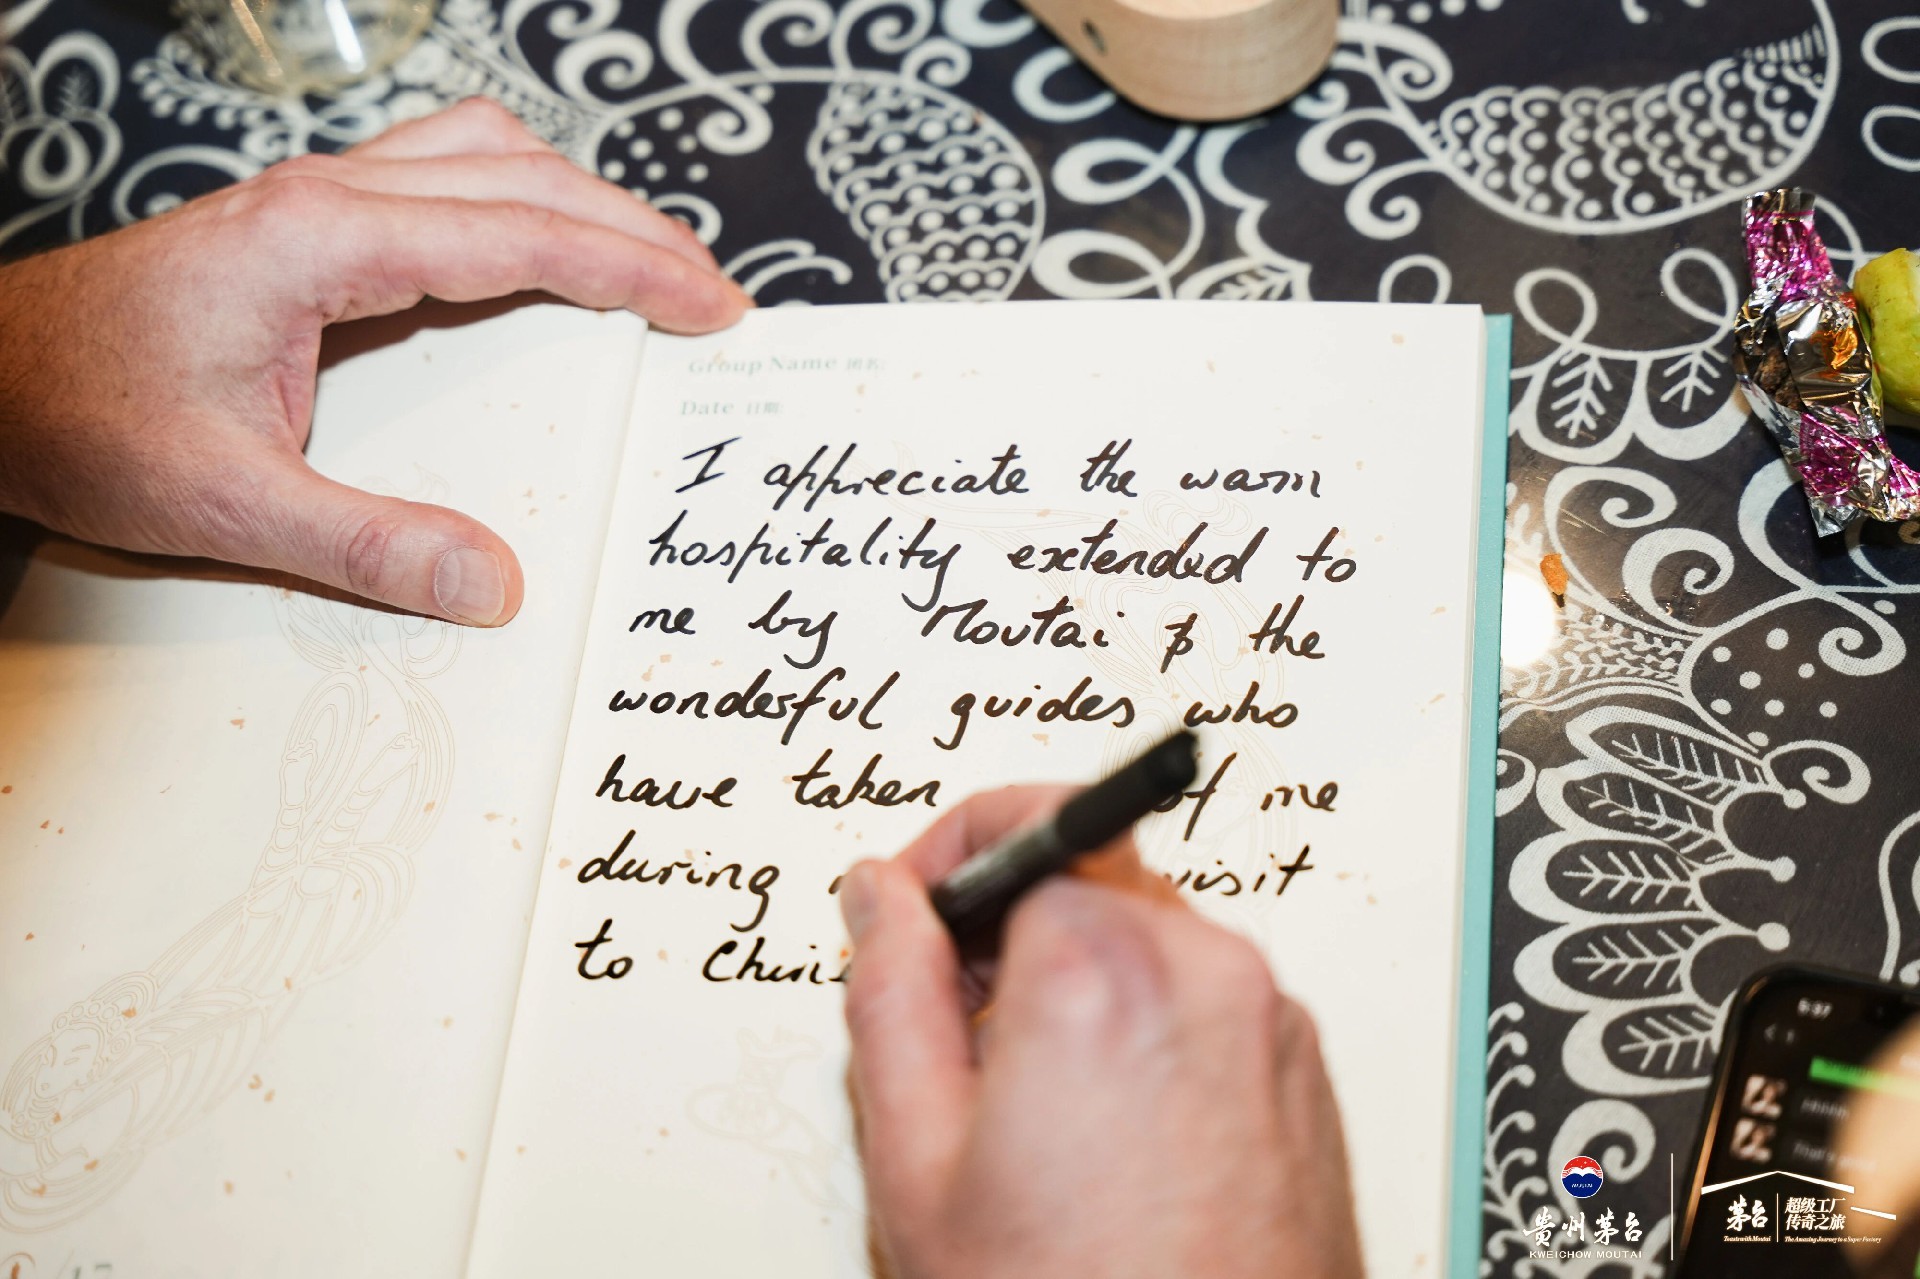 Group Name
Date 日期
I appreciate the warm
hospitality extended to
me by Moutai & the
wonderful guides who
have taken of me
during visit
to
5:37
MOUTAI
贵州茅台
KWEICHOW MOUTAI
茅台
Toast with Moutai
超级工厂
传奇之旅
The Amazing Journey to a Super Factory